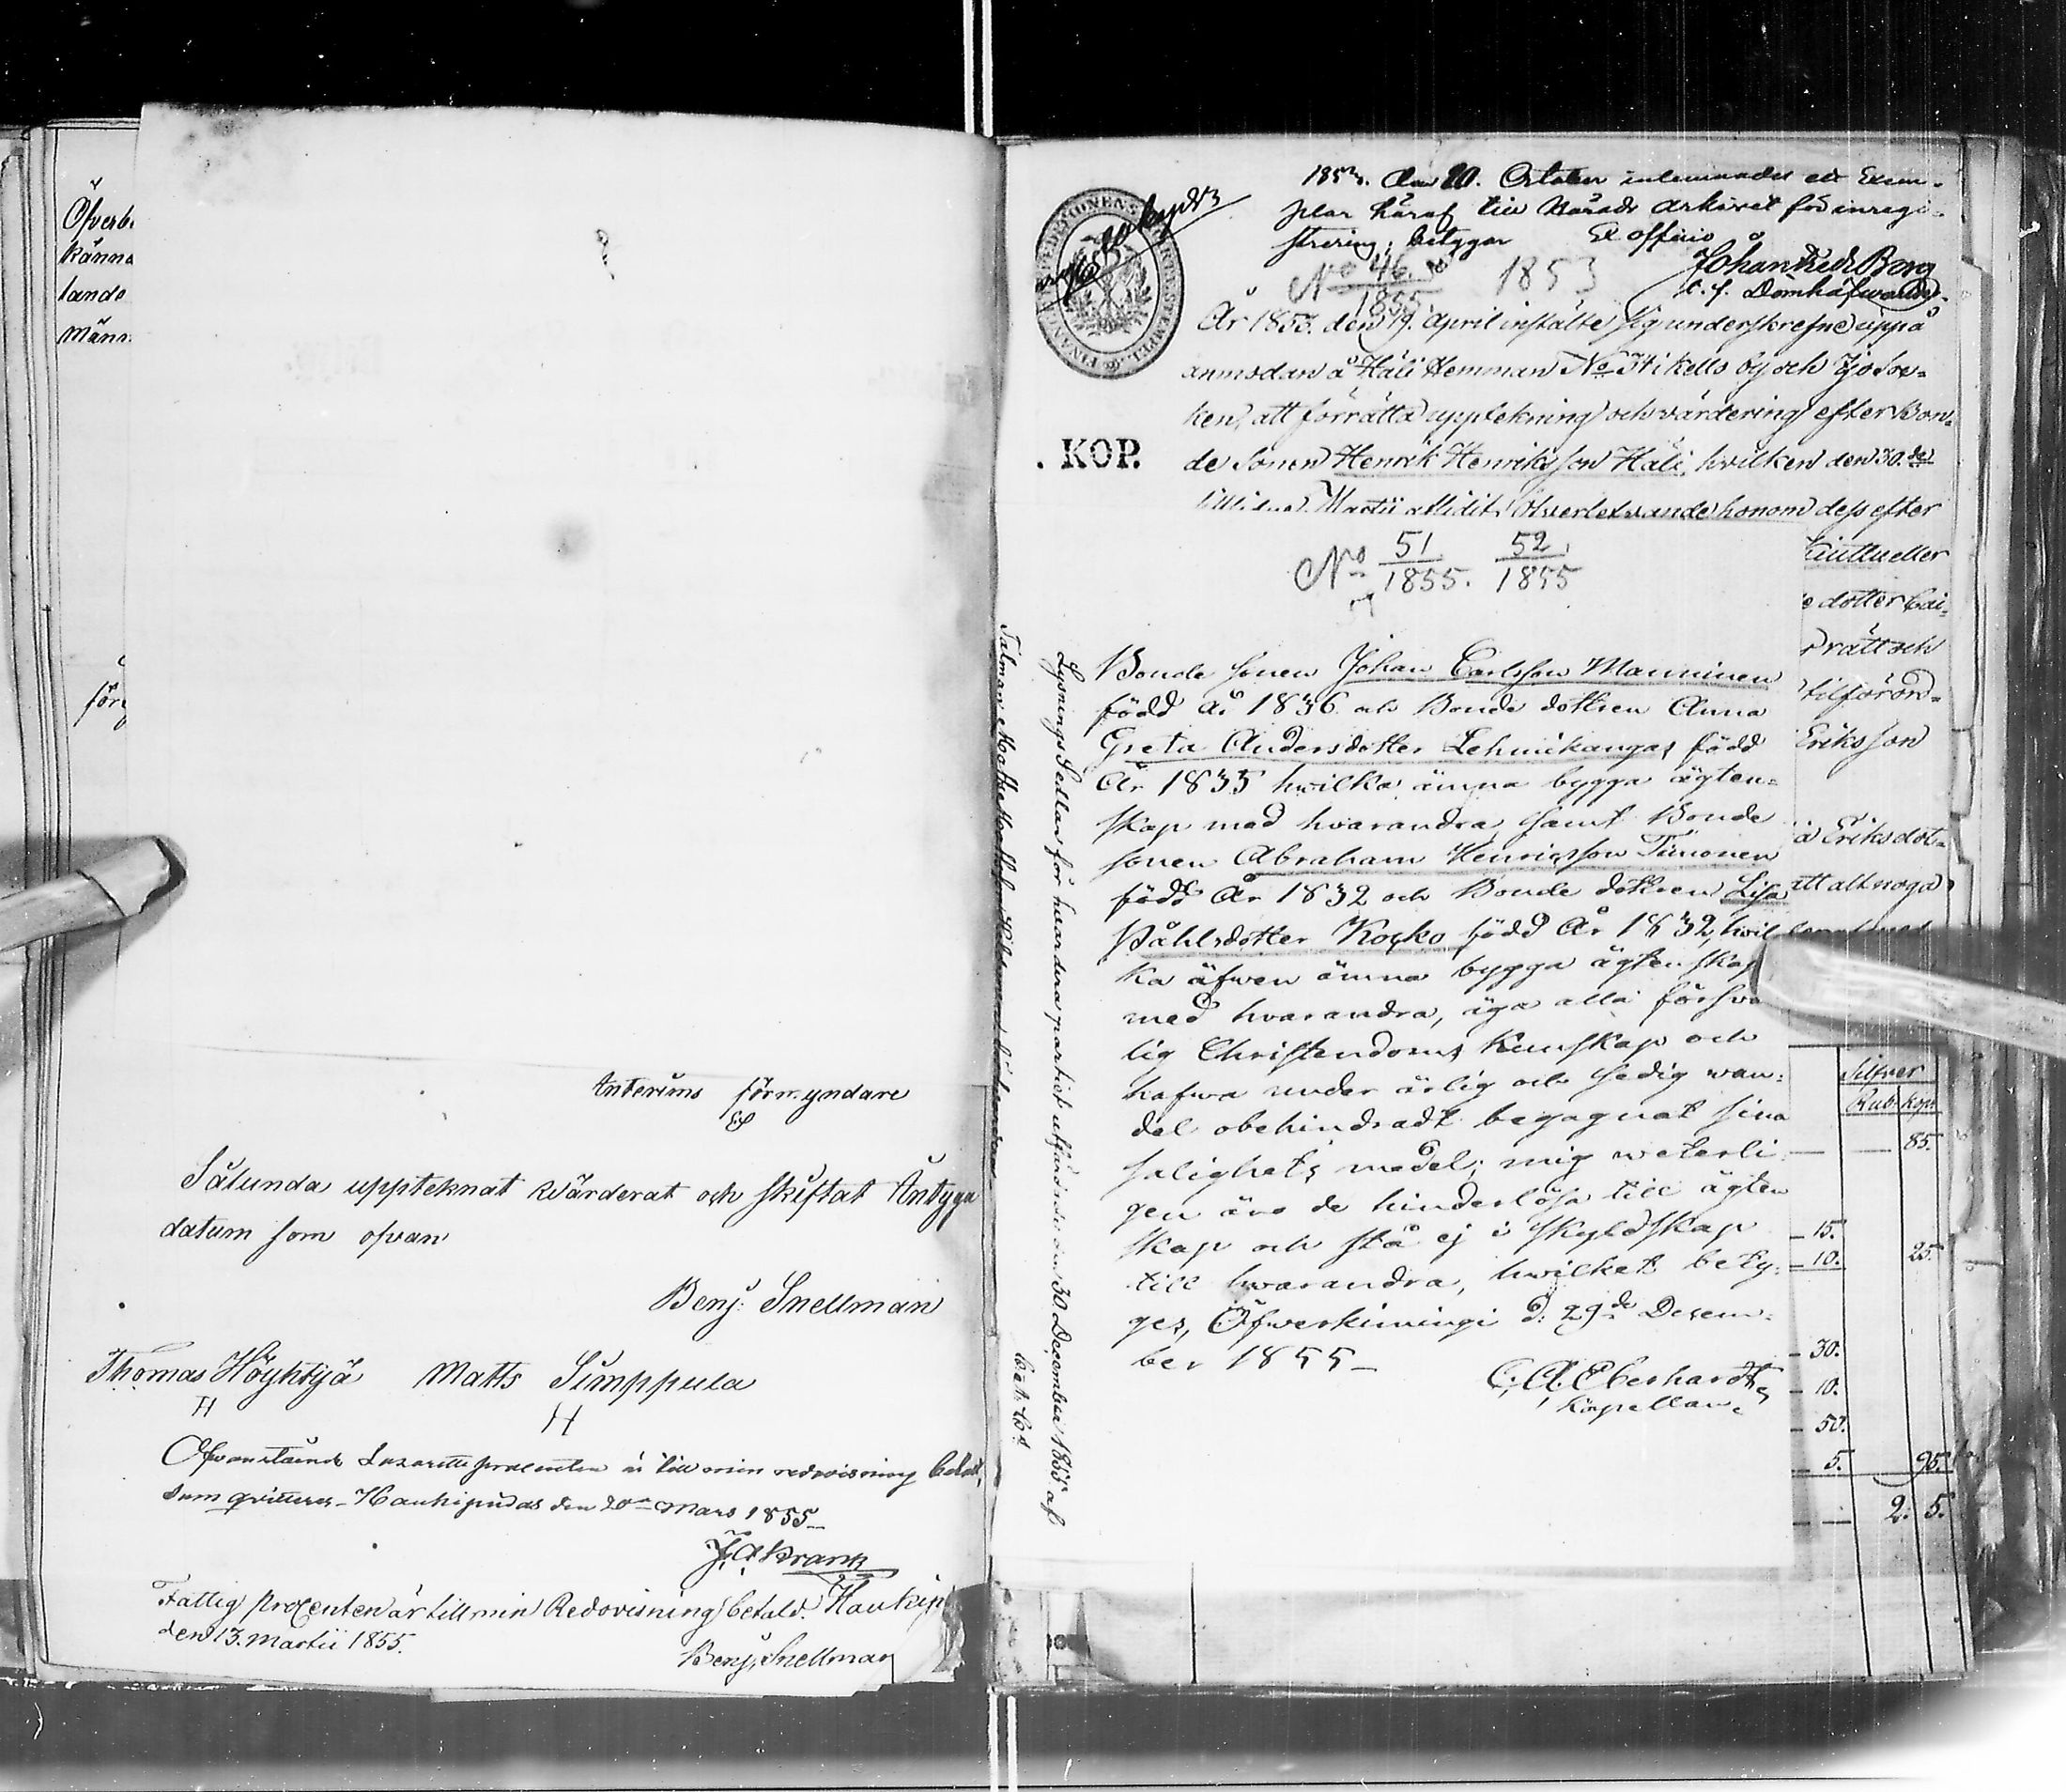 Öfverb
känna
lands
Männ
förs
Interims förmyndare
Sålunda uppteknat värderat och skiftat Intyga
datum som ofvan
Benj: Snellman
Thomas Höyhtyä Matts Simppula
Ofvanstående Lazaretts procenten är till min redovisning betalt,
som qvitteras. Haukipudas den 20de Mars 1855
Fattig procenten är till min Redovisning betald. Haukip
den 13. Martii 1855.
Benj. Snellman
1853. den 20. October inlemnades ett Exem-
plar häraf till Härads Arkivet för inregi-
strering; betygar Ex officio
Johan Fredr Berg
No 46 1853
1855.
KOP.
År 1853. den 19. April instälte sig underskrefne uppå
anmodan å Häli Hemman No 34 i Kello by och Ijo Soc-
ken, att förrätta upptekning och värdering efter Bon-
de Sonen Henrik Henriksson Häli, hvilken den 30.de
Martii aflidit, Öfverlefvande honom dess efter
No 51 52
1855. 1855
Bonde sonen Johan Carlsson Manninen
född år 1836 och Bonde dottren Anna
Greta Andersdotter Lehmikangas född
År 1835 hvilka ämna bygga ägten-
skap med hvarandra samt Bonde
sonen Abraham Henricsson Timonen
född År 1832 och Bonde dottren Lisa
Påhlsdotter Kosko född År 1832, hvil
ka äfwen ämna bygga ägtenskap
med hvarandra, äga alla försva
lig Christendoms Kunskap och
hafwa under ärlig och sedig wan-
del obehindradt begagnat sina
salighets medel; mig weterli
gen äro de hinderlösa till ägten
skap och stå ej i skyldskap
till hvarandra, hwilket bety-
ges, Öfwerkiminge d: 29de Decem-
ber 1855
C. A. Eberhardt
Kapellan
Lysnings Sedlar för hvardera paret utfärdade den 30. December 1855 af
e dotter Cai-
rätt och
tilförord-
Eriksson
a Eriksdot-
att alt noga
Silfver
Rub. kop
85.
15.
10. 25.
30.
10.
50.
5. 95.
2. 5.